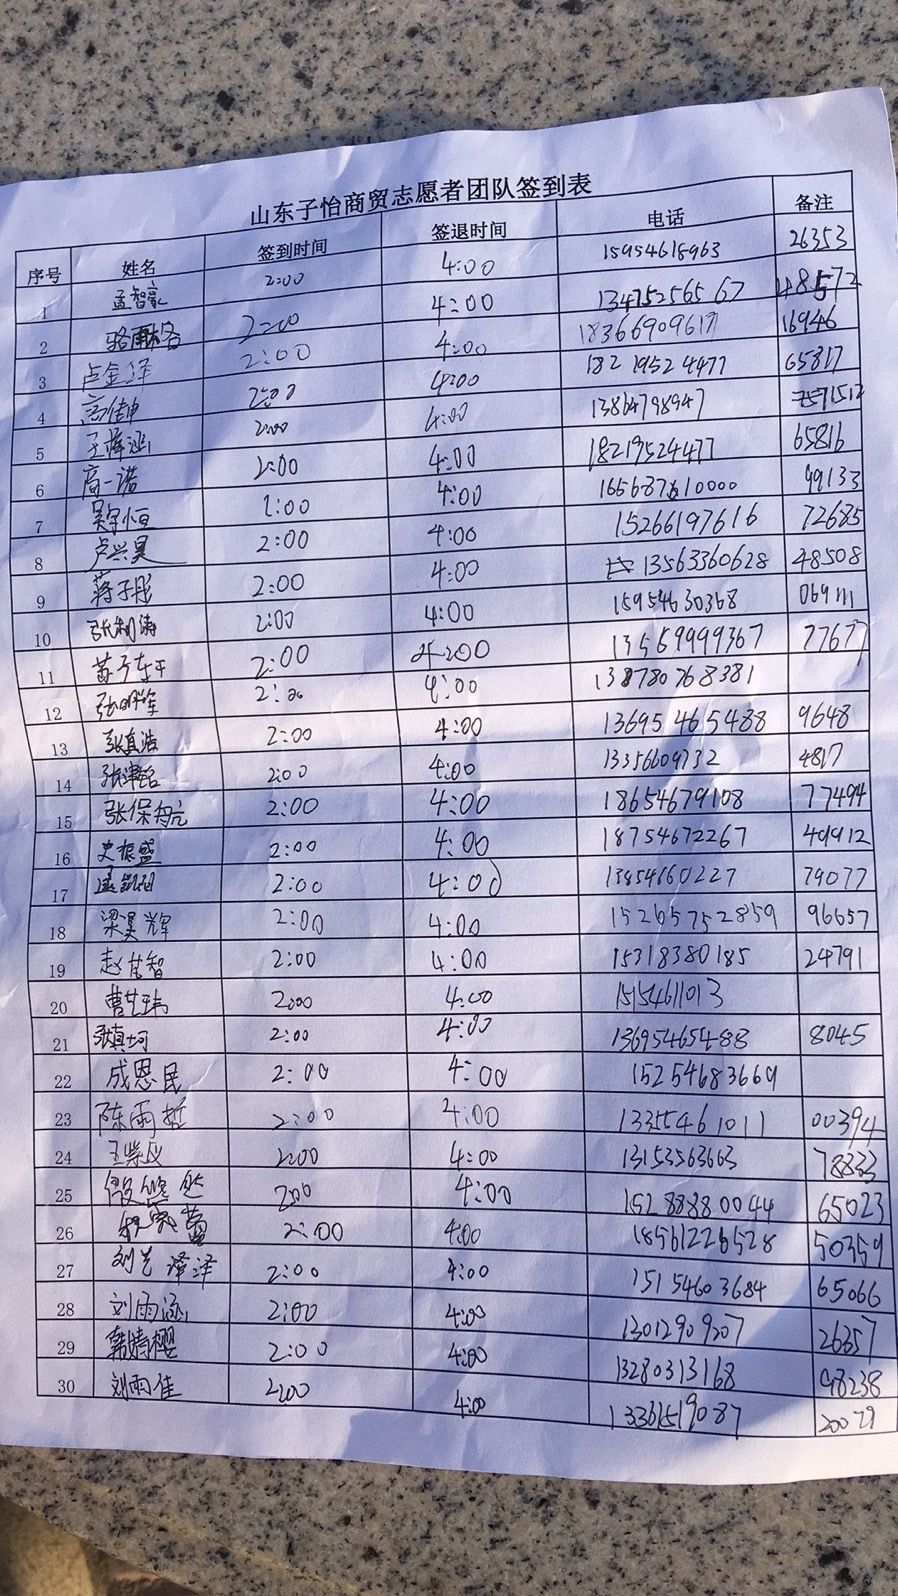 山东子怡商贸志愿者团队签到表
序号 姓名 签到时间 签退时间 电话 备注
1 孟智豪 2:00 4:00 15954618963 26353
2 2:00 4:00 13475256567 48572
3 卢金泽 2:00 4:00 18366909617 16946
4 高佳坤 2:00 4:00 18219524477 65817
5 王梓涵 2:00 4:00 13864798947 71512
6 高一诺 2:00 4:00 18219524477 65816
7 吴宇恒 2:00 4:00 10000 99133
8 卢兴昊 2:00 4:00 15266197616 72685
9 蒋子彤 2:00 4:00 13563360628 48508
10 2:00 4:00 15954630368 069111
11 2:00 4:00 13569999367 77677
12 2:00 4:00 138780768381
13 张真浩 2:00 4:00 13695465488 9648
14 2:00 4:00 13356609732 4817
15 2:00 4:00 18654679108 77494
16 史振盛 2:00 4:00 18754672267 49912
17 2:00 4:00 13854660227 79077
18 梁昊辉 2:00 4:00 15265752859 96657
19 2:00 4:00 15318380185 24791
20 2:00 4:00 15154611013
21 张真珂 2:00 4:00 13695465488 8045
22 成恩民 2:00 4:00 15254683669
23 陈雨哲 2:00 4:00 13355461011 00394
24 2:00 4:00 13153563663 78833
25 2:00 4:00 15288880044 65023
26 2:00 4:00 18561226528 50359
27 刘艺泽泽 2:00 4:00 15154603684 65066
28 刘雨涵 2:00 4:00 13012909207 26357
29 韩婧樱 2:00 4:00 13280313168 98238
30 刘雨佳 2:00 4:00 13361519087 20079